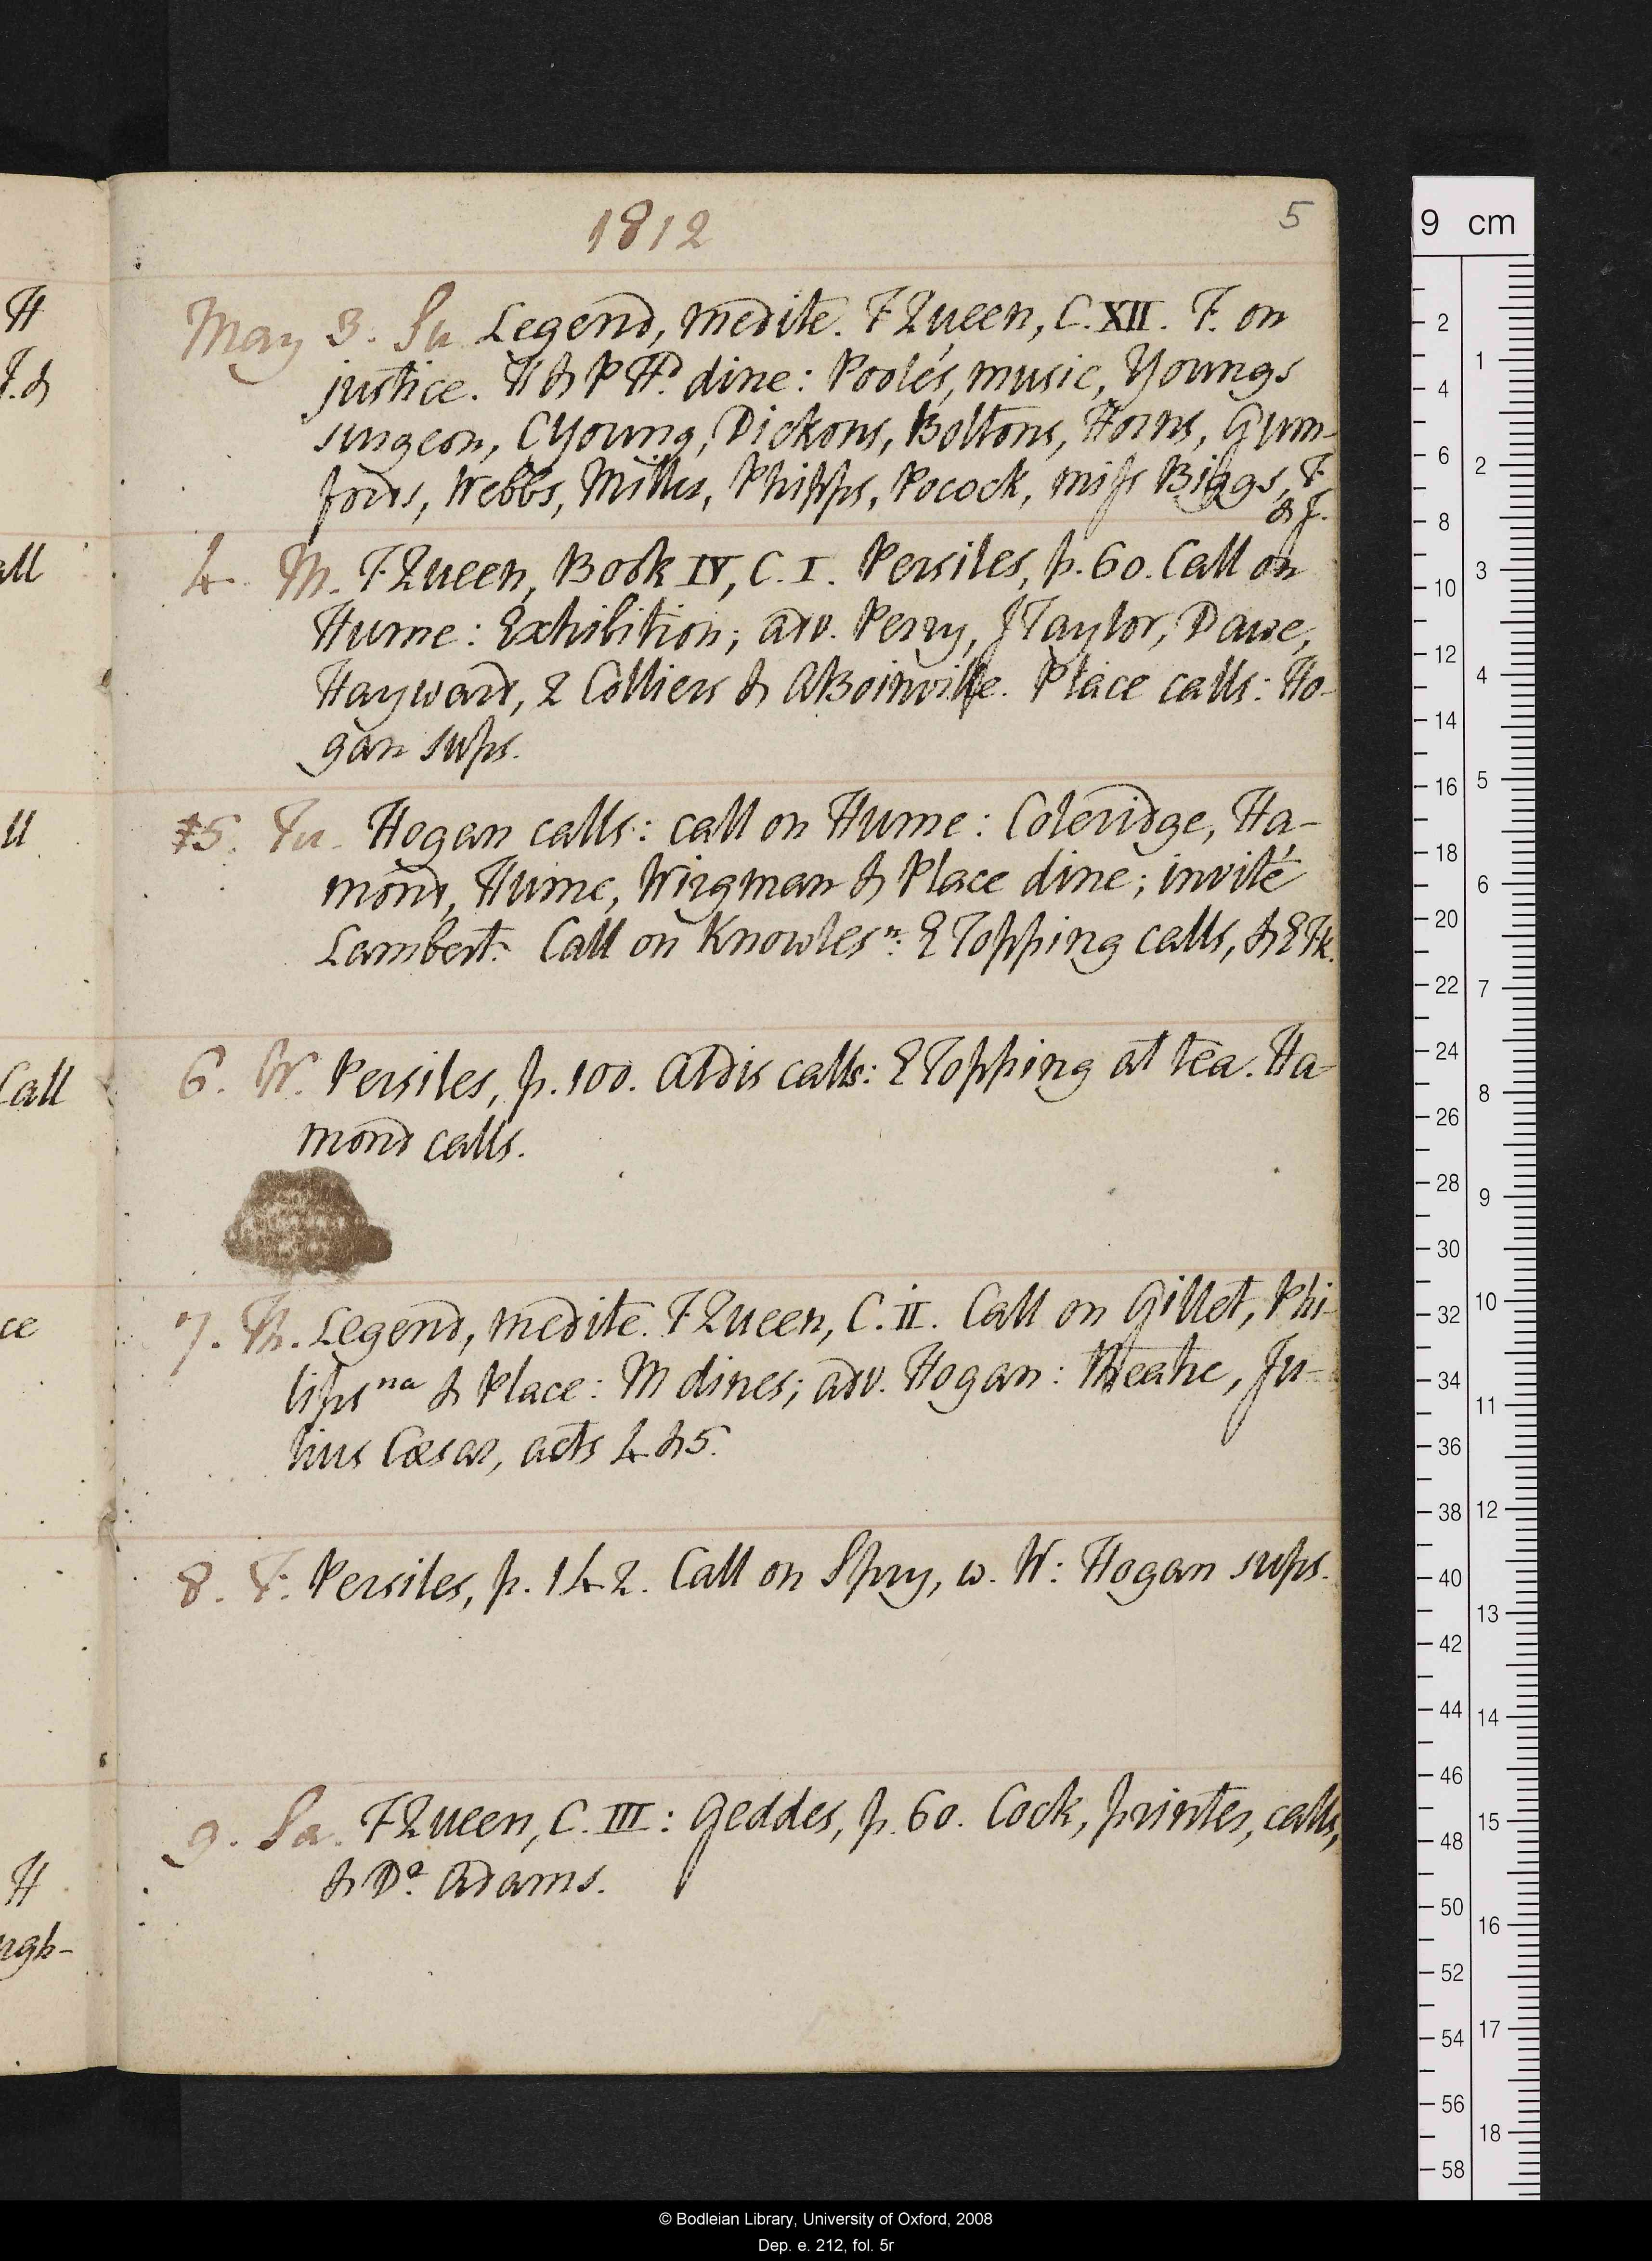 1812
5
May 3. Su. Legend, medite. F Queen, C. XII. F. on
justice. H & P Hd. dine: Poole's, music, Youngs
surgeon, C Young, Dickons, Boltons, Horns, Gum-
fords, Webbs, Mills, Phipps, Pocock, miss Biggs, F.
& J.
4. M. F Queen, Book IV, C. I. Persiles, p. 60. Call on
Hume: Exhibition; adv. Perry, J Taylor, Dawe,
Hayward, 2 Colliers & A Boinville. Place calls: Ho-
gan sups.
5. Tu. Hogan calls: call on Hume: Coleridge, Ha-
mond, Hume, Wirgman & Place dine; invité
Lambert. Call on Knowles n: E Topping calls, & E Fk.
6. W. Persiles, p. 100. Aldis calls: E Topping at tea. Ha-
mond calls.
7. Th. Legend, medite. F Queen, C. II. Call on Gillet, Phi-
lips na & Place: M dines; adv. Hogan: theatre, Ju-
lius Cæsar, acts 4 & 5.
8. F. Persiles, p. 142. Call on Spry, w. W: Hogan sups.
9. Sa. F Queen, C. III: Geddes, p. 60. Cock, printer, calls,
& Do. Adams.
H
F. &
all
ll
Call
ce
H
ugh-
9 cm
2
4
6
8
10
12
14
16
18
20
22
24
26
28
30
32
34
36
38
40
42
44
46
48
50
52
54
56
58
1
2
3
4
5
6
7
8
9
10
11
12
13
14
15
16
17
18
© Bodleian Library, University of Oxford, 2008
Dep. e. 212, fol. 5r